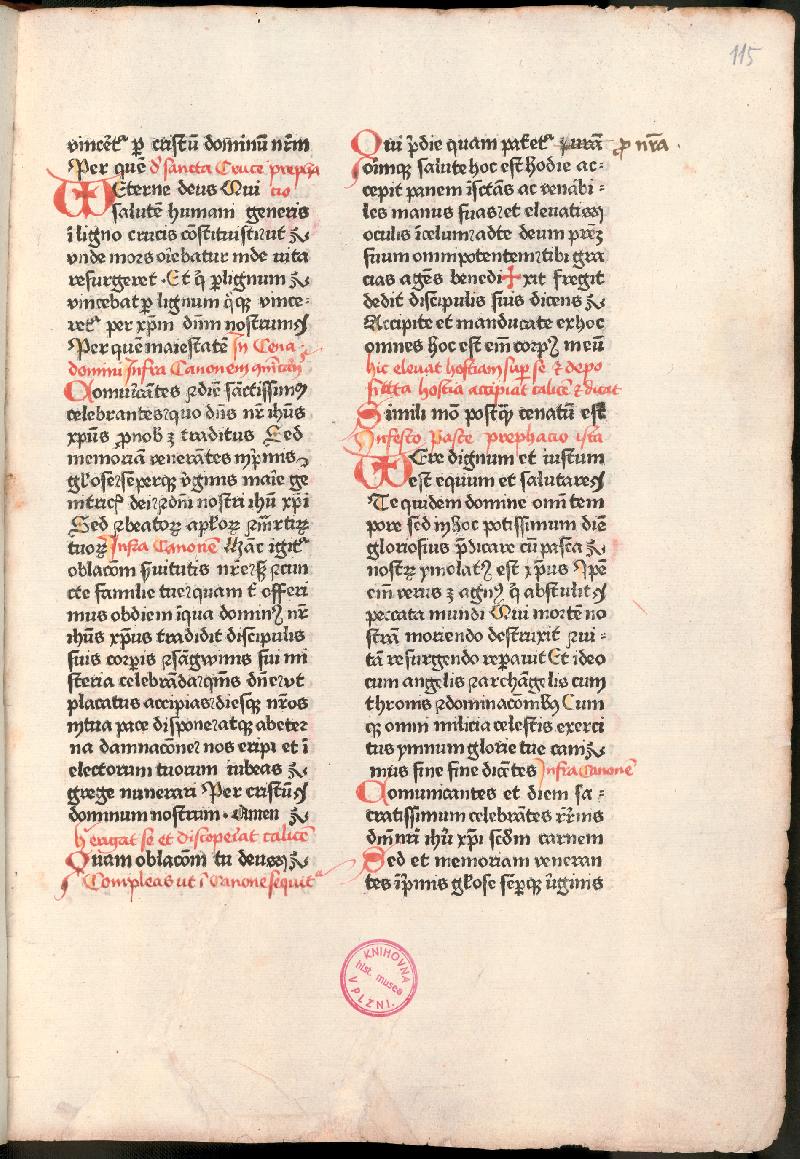 115
vincet᷑ p̱ cristū dominū nr̄m
Per quē d' sancta Cruce prepha
cio
Eterne deus Qui
salutē humani generis
ī ligno crucis cōstituisti ut
vnde mors oriebatur inde uita
resurgeret · Et q̇ ꝑ lignum
vincebat ꝑ lignum q̇qꝫ vince-
ret᷑ per xp̄m dn̄m nostrum
Per quē maiestatē In Cena
domini Infra Canonem
Comuicātes ⁊ diē sāctissimū
celebrantes quo dn̄s nr̄ ihūs
xp̄us ꝓ nobꝫ traditus Sed
memoriā venerātes inprimis
gl̄ose semperqꝫ v̇ginis marie ge
nitricꝭ dei ⁊ dn̄i nostri ihū xp̄i
Sed ⁊ beatoꝝ apl̄oꝝ ⁊ mr̄tiꝝ
tuoꝝ Infra Canonē Hāc igit᷑
oblacōm s̄uitutis nr̄e sꝫ ⁊ cun
cte familie tue quam t̄ offeri
mus ob diem ī qua dominꝰ nr̄
ihūs xp̄us tradidit discipulis
suis corpīs ⁊ sāgwinis sui mi
steria celebrāda qm̄s dn̄e vt
placatus accipias diesqꝫ nr̄os
in tua pace disponas atqꝫ ab eter
na damnacōne nos eripi et ī
electorum tuorum iubeas
grege nunerari Per cristū
dominum nostrum · Amen
herigat se et discoperiat calicē
Quam oblacōm tu deus
Compleas ut ī Canone sequit᷑
Qui p̄die quam patet᷑ ꝓ nr̄a
oīmqꝫ salute hoc est hodie ac-
cepit panem ī sctās ac venābi-
les manus suas et eleuatis
oculis ī celum ad te deum prēꝫ
suum omnipotentem tibi gra
cias agēs benedi✝xit fregit
dedit discipulis suis dicens
Accipite et manducate ex hoc
omnes hoc est em̄ corpꝰ meū
hic eleuat hostiam suꝑ se ⁊ depo
sita hostia accipiat calicē ⁊ dicat
Simili mō postq̄ cenatū est
In festo Pasce prephacio ista
Vere dignum et iustum
est equum et salutare
Te quidem domine omī tem
pore sed in hoc potissimum diē
gloriosius p̄dicare cū pasca
nostꝝ ymolatꝰ est xp̄us Ipē
em̄ verus ꝫ agnꝰ q̇ abstulit
peccata mundi Qui mortē no
strā moriendo destruxit ⁊ ui-
tā resurgendo reꝑauit Et ideo
cum angelis ⁊ archāgelis cum
thronis ⁊ dominacōnibꝰ Cum
qꝫ omni milicia celestis exerci
tus ymnum glorie tue cani
mus sine fine dicētes Infra Canonē
Comunicantes et diem sa-
cratissimum celebrātes
dn̄i nr̄i ihū xp̄i scd̄m carnem
Sed et memoriam veneran
tes īp̄mis gl̄ose sēꝑqꝫ v̄ginis
KNIHOVNA
hist. musea
V PLZNI.